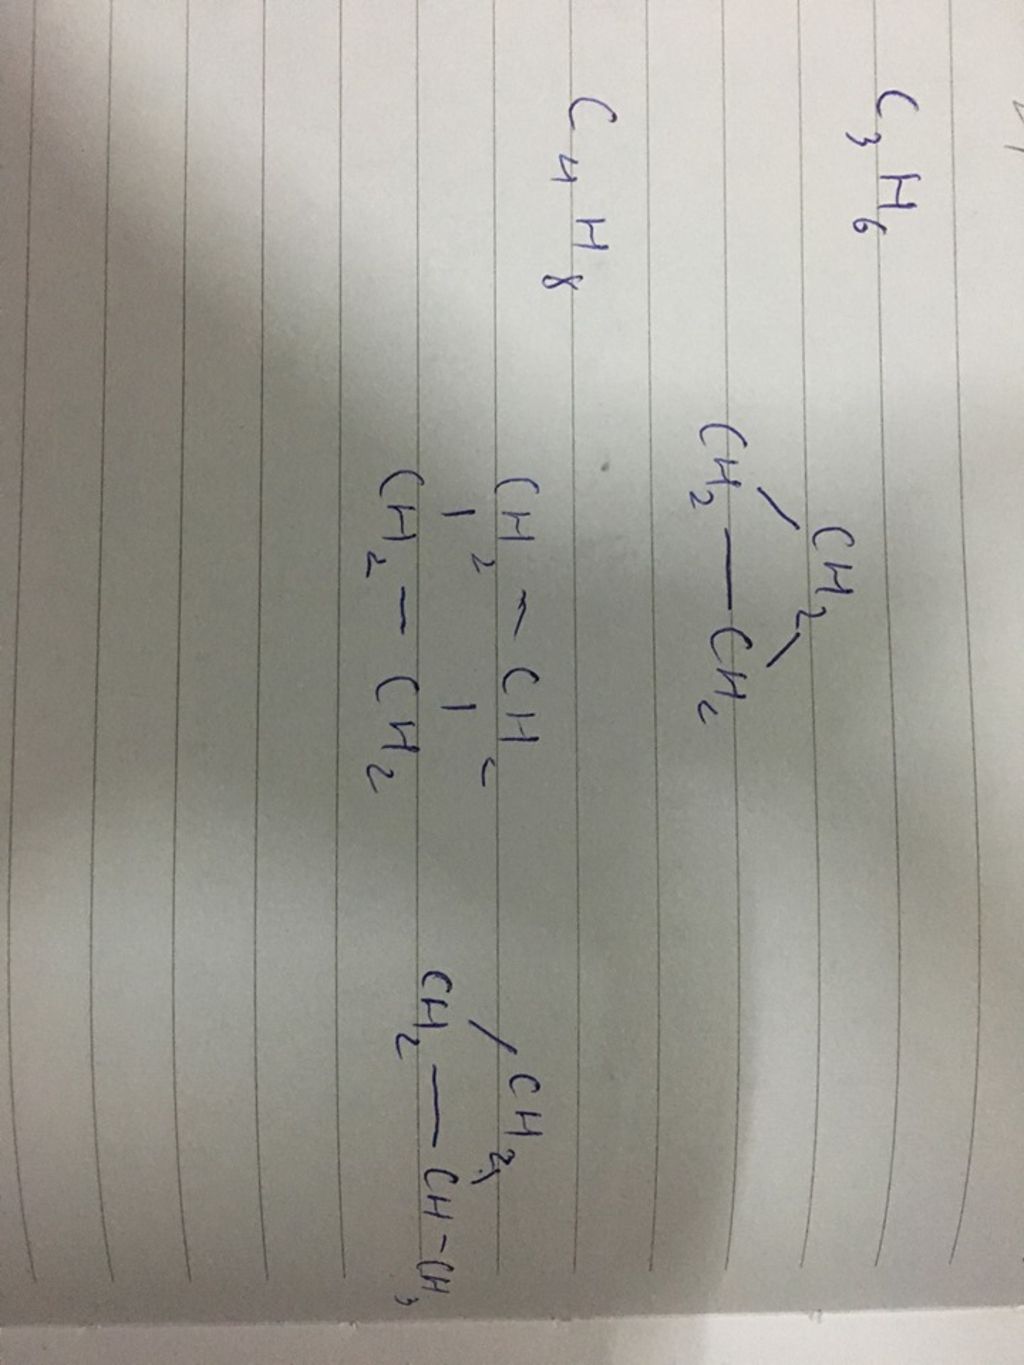 C3H6
CH2
CH2 — CH2
C4H8
CH2 — CH2
CH2 — CH2
CH2
CH2 — CH - CH3